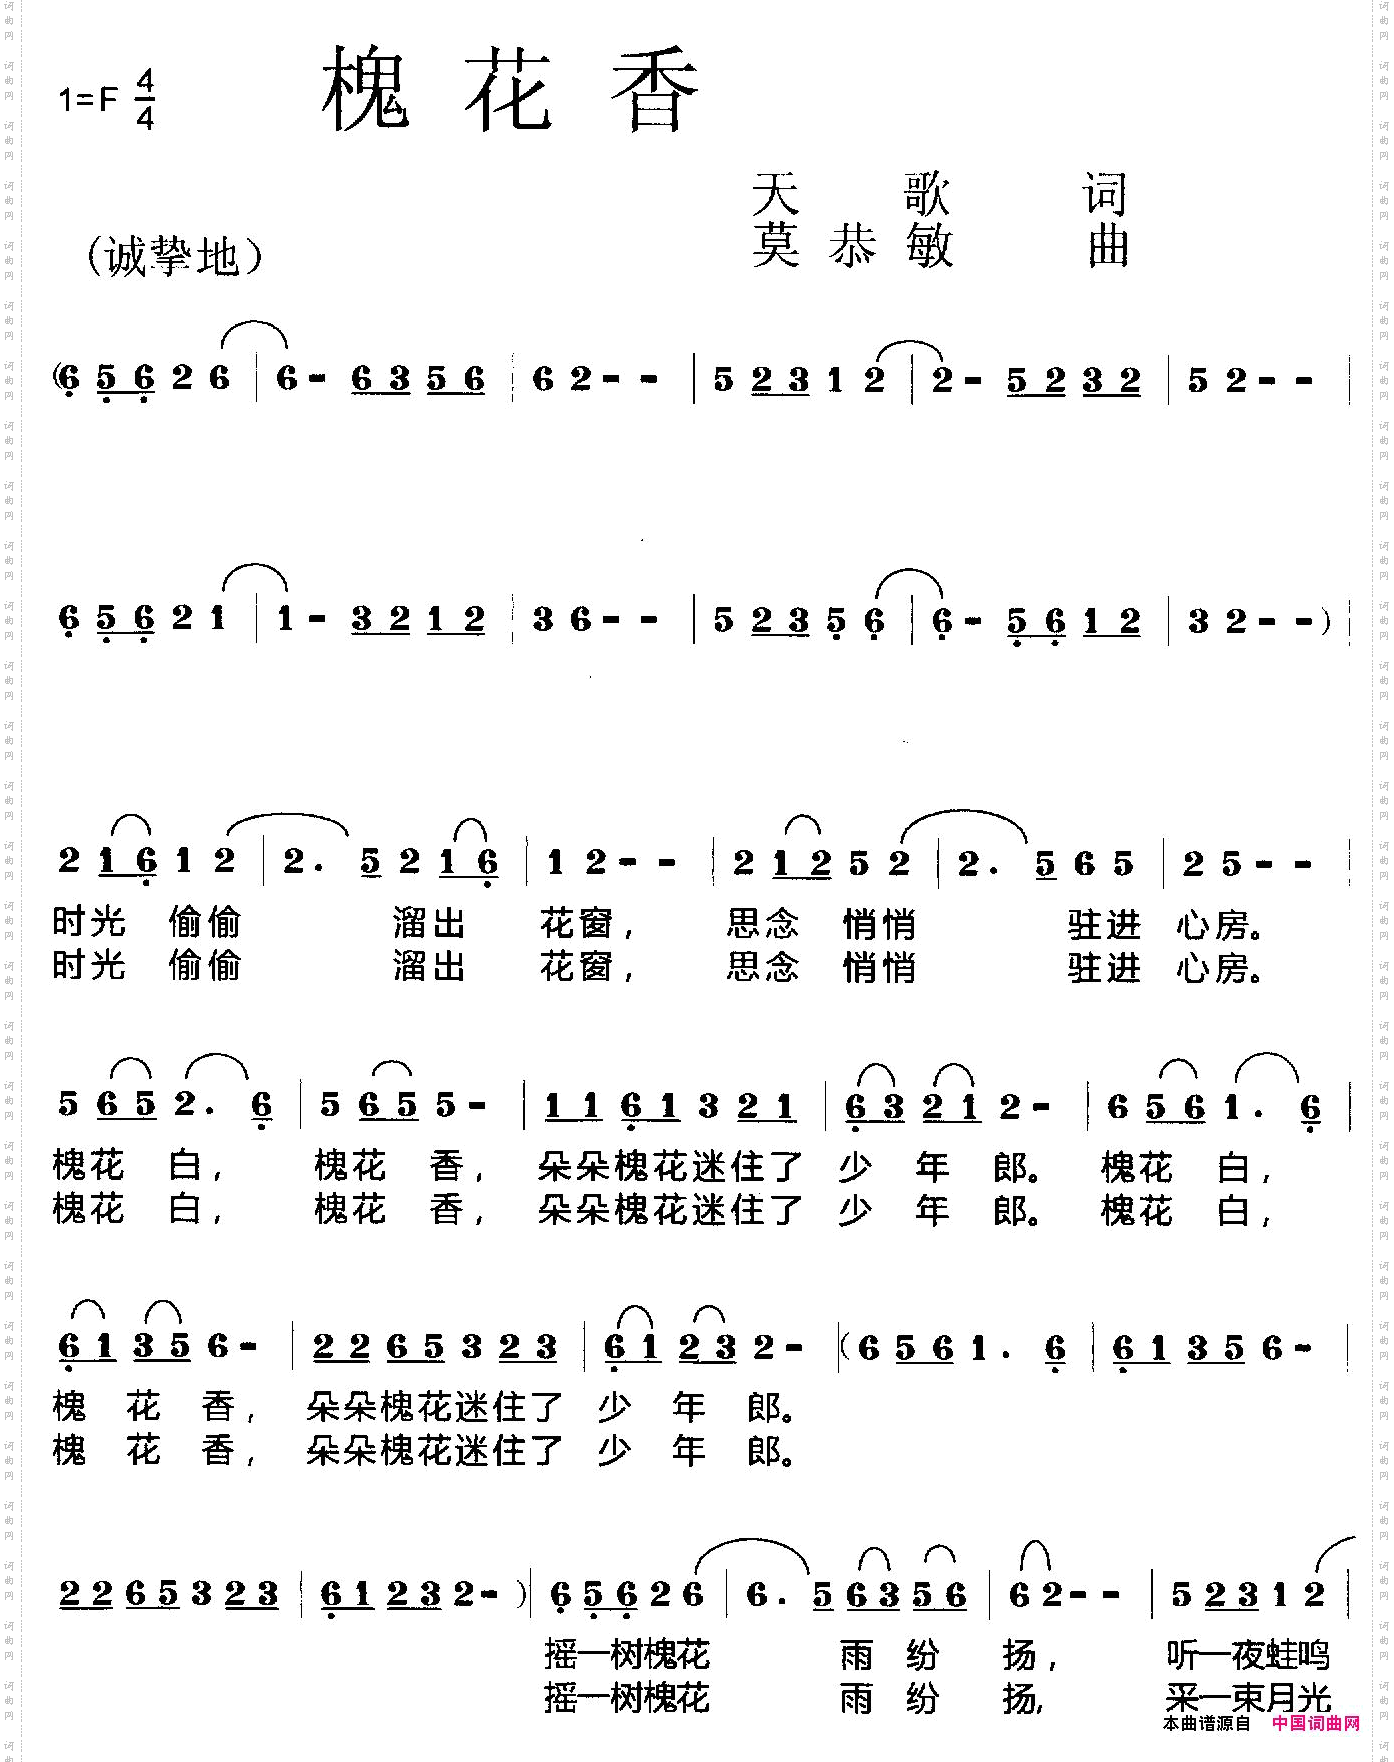 槐花香
1=F 4/4
天歌词
莫恭敏曲
(诚挚地)
(6 5 6 2 6 | 6 - 6 3 5 6 | 6 2 - - | 5 2 3 1 2 | 2 - 5 2 3 2 | 5 2 - - |
6 5 6 2 1 | 1 - 3 2 1 2 | 3 6 - - | 5 2 3 5 6 | 6 - 5 6 1 2 | 3 2 - - ) |
2 1 6 1 2 | 2. 5 2 1 6 | 1 2 - - | 2 1 2 5 2 | 2. 5 6 5 | 2 5 - - |
时光 偷偷 溜出 花窗, 思念 悄悄 驻进 心房。
时光 偷偷 溜出 花窗, 思念 悄悄 驻进 心房。
5 6 5 2. 6 | 5 6 5 5 - | 1 1 6 1 3 2 1 | 6 3 2 1 2 - | 6 5 6 1. 6 |
槐花 白, 槐花 香, 朵朵槐花迷住了 少 年 郎。 槐花 白,
槐花 白, 槐花 香, 朵朵槐花迷住了 少 年 郎。 槐花 白,
6 1 3 5 6 - | 2 2 6 5 3 2 3 | 6 1 2 3 2 - | (6 5 6 1. 6 | 6 1 3 5 6 - |
槐 花 香, 朵朵槐花迷住了 少 年 郎。
槐 花 香, 朵朵槐花迷住了 少 年 郎。
2 2 6 5 3 2 3 | 6 1 2 3 2 - ) | 6 5 6 2 6 | 6. 5 6 3 5 6 | 6 2 - - | 5 2 3 1 2 |
摇一树槐花 雨 纷 扬, 听一夜蛙鸣
摇一树槐花 雨 纷 扬, 采一束月光
本曲谱源自 中国词曲网